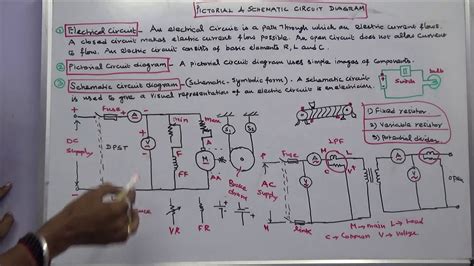 PICTORIAL & SCHEMATIC CIRCUIT DIAGRAM
① Electrical Circuit - An electrical circuit is a path through which an electric current flows.
A closed circuit makes electric current flow possible. An open circuit does not allow current
to flow. An electric circuit consists of basic elements R, L and C.
② Pictorial circuit diagram - A pictorial circuit diagram uses simple images of components.
③ Schematic circuit diagram - (Schematic - Symbolic forms). A schematic circuit
is used to give a visual representation of an electric circuit to an electrician.
Bulb
Switch
1) Fixed resistor
2) Variable resistor
3) Potential divider
+ Fuse A
DC
Supply
DPST
V
min
F
FF
max
A
M
AA
S1 S2
Brake
drum
P Fuse A
M L
LPF
C V
AC
Supply
N
link
V
A
V
open
VR FR
M → main L → Load
C → Common V → Voltage